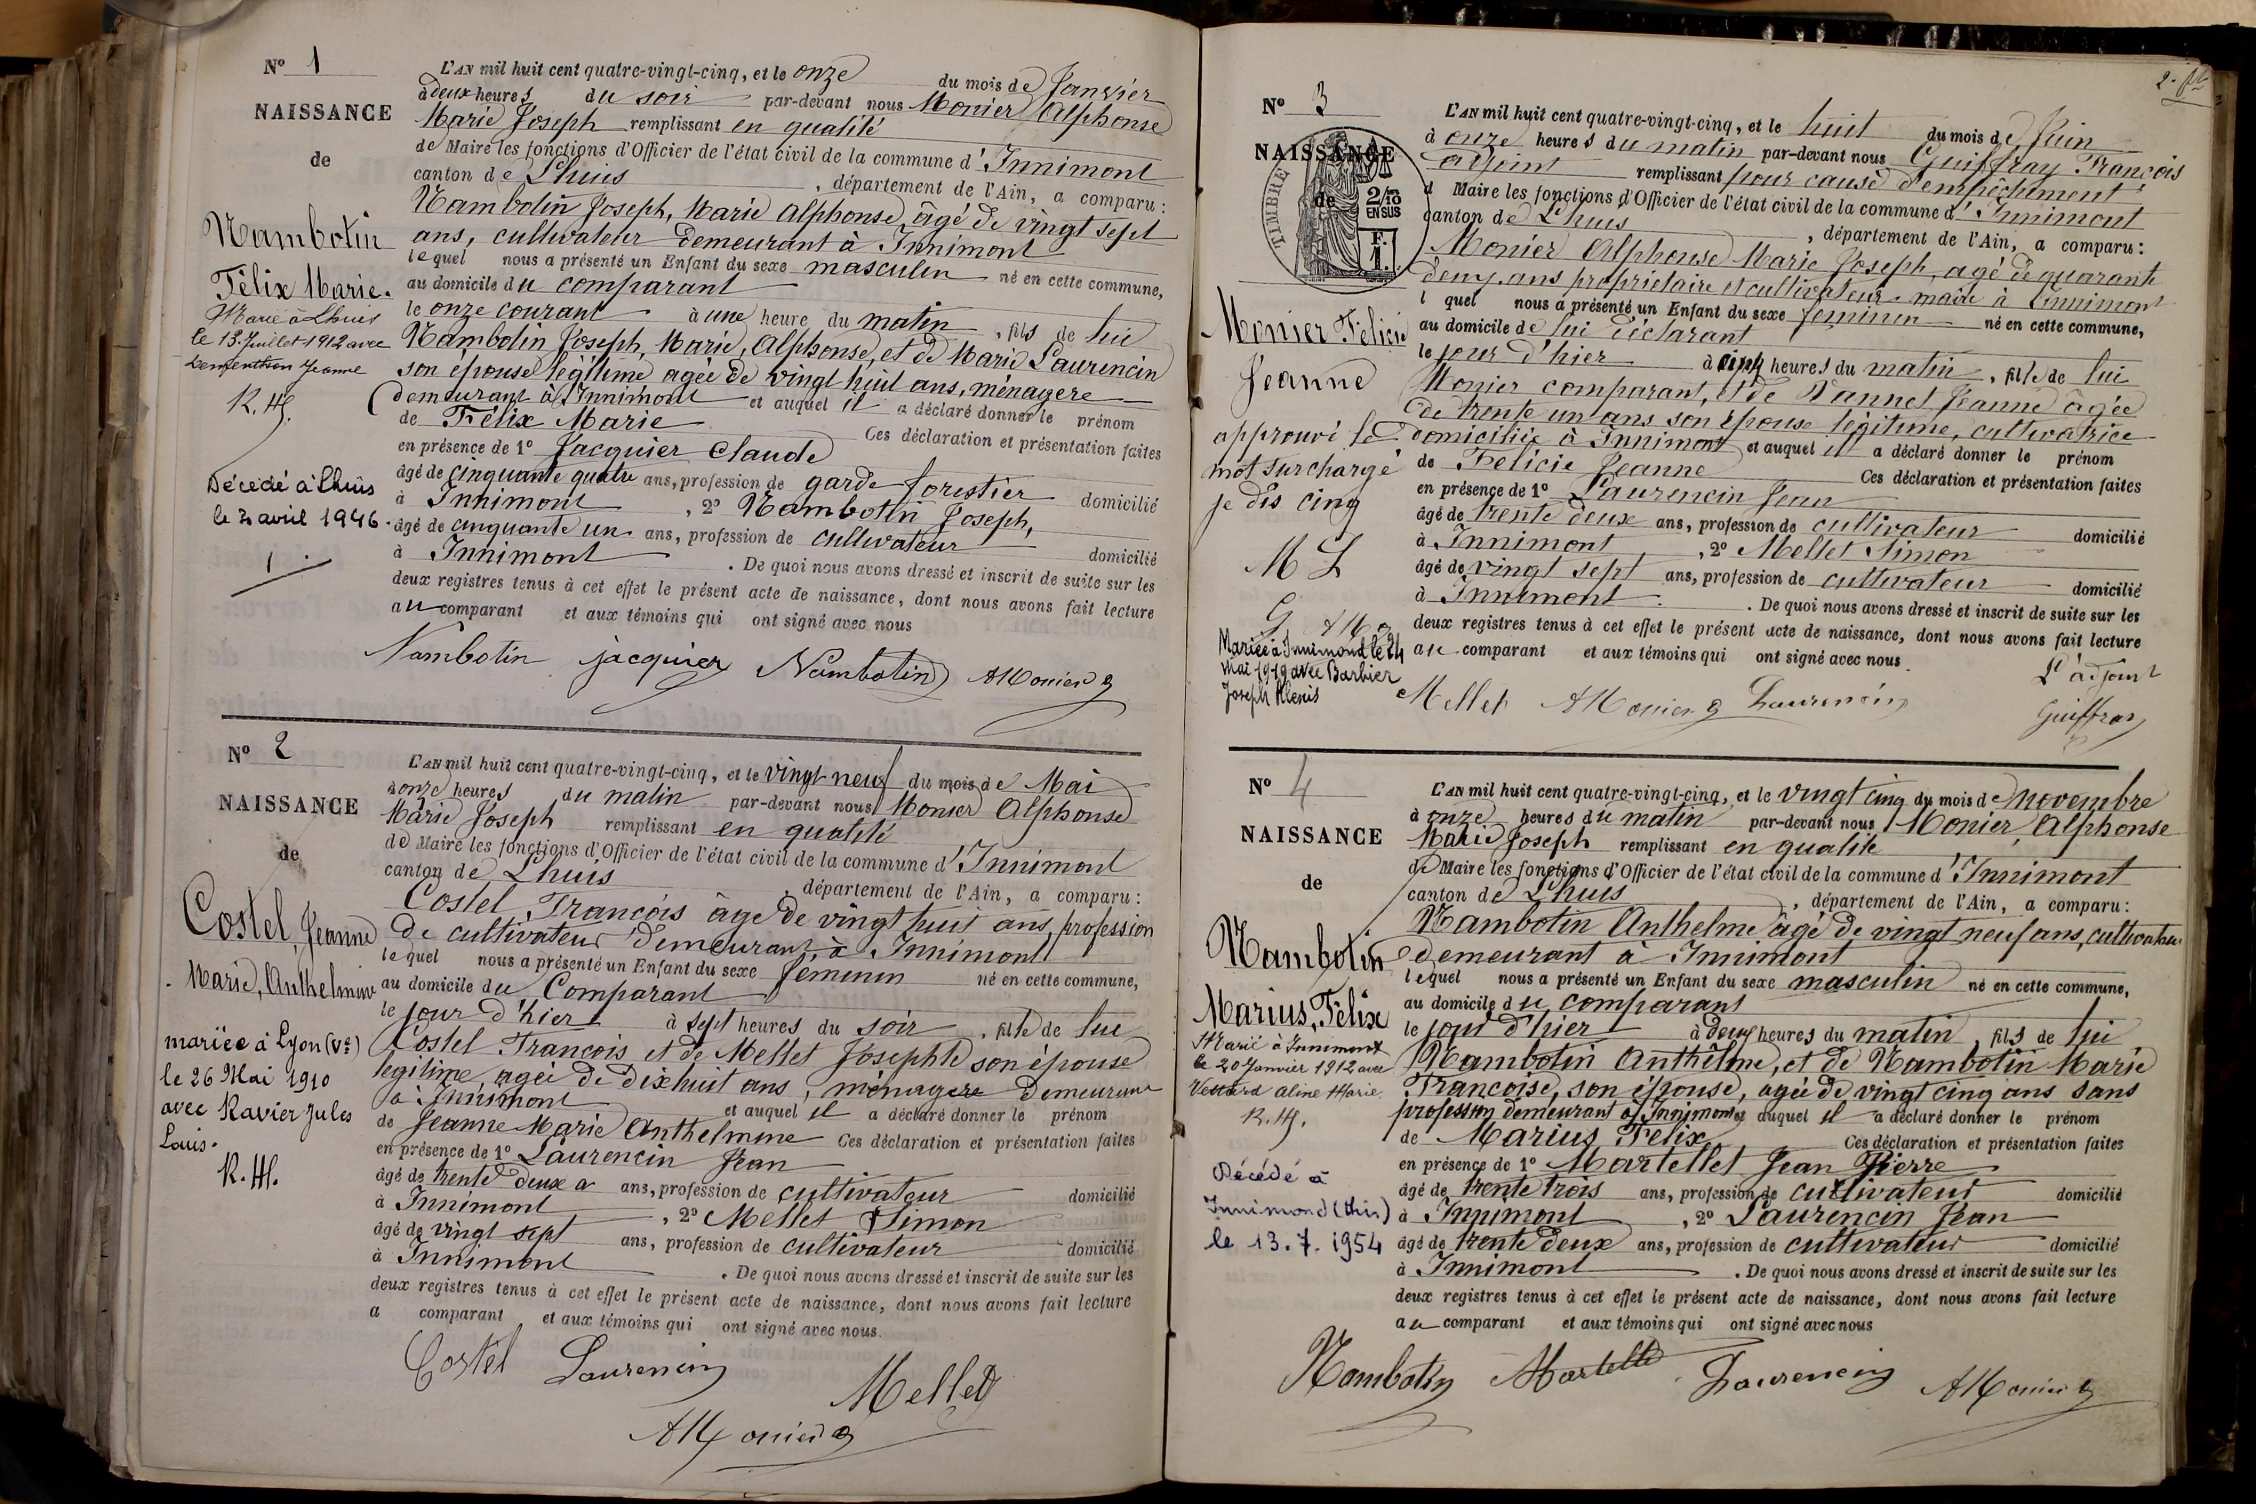 Nº 1
NAISSANCE
de
Nambotin
Félix Marie.
Marié à Lhuis
le 13 Juillet 1912 avec
Jeanne
R.H.
Décédé à Lhuis
le 2 avril 1946.
1
L'AN mil huit cent quatre-vingt-cinq, et le onze du mois de Janvier
à deux heures du soir par-devant nous Monier Alphonse
Marie Joseph remplissant en qualité
de Maire les fonctions d'Officier de l'état civil de la commune d'Innimont
canton de Lhuis, département de l'Ain, a comparu :
Nambotin Joseph, Marie Alphonse âgé de vingt sept
ans, cultivateur demeurant à Innimont
lequel nous a présenté un Enfant du sexe masculin né en cette commune,
au domicile du comparant
le onze courant à une heure du matin, fils de lui
Nambotin Joseph, Marie, Alphonse, et de Marie Laurencin
son épouse légitime agée de vingt huit ans, ménagère
demeurant à Innimont et auquel il a déclaré donner le prénom
de Félix Marie Ces déclaration et présentation faites
en présence de 1º Jacquier Claude
âgé de cinquante quatre ans, profession de garde forestier domicilié
à Innimont, 2º Nambotin Joseph,
âgé de cinquante un ans, profession de cultivateur domicilié
à Innimont. De quoi nous avons dressé et inscrit de suite sur les
deux registres tenus à cet effet le présent acte de naissance, dont nous avons fait lecture
au comparant et aux témoins qui ont signé avec nous
Nambotin jacquier Nambotin AMonier
Nº 2
NAISSANCE
de
Costel, Jeanne
Marie, Anthelmine
mariée à Lyon (Ve)
le 26 Mai 1910
avec Ravier Jules
Louis.
R.H.
L'AN mil huit cent quatre-vingt-cinq, et le vingt-neuf du mois de Mai
à onze heures du matin par-devant nous Monier Alphonse
Marie Joseph remplissant en qualité
de Maire les fonctions d'Officier de l'état civil de la commune d'Innimont
canton de Lhuis, département de l'Ain, a comparu :
Costel, François âgé de vingt huit ans, profession
de cultivateur demeurant à Innimont
lequel nous a présenté un Enfant du sexe féminin né en cette commune,
au domicile du Comparant
le jour d'hier à sept heures du soir, fille de lui
Costel François et de Mellet Josephte son épouse
légitime, agée de dix huit ans, ménagère demeurant
à Innimont et auquel il a déclaré donner le prénom
de Jeanne Marie Anthelmine Ces déclaration et présentation faites
en présence de 1º Laurencin Jean
âgé de trente deux a ans, profession de cultivateur domicilié
à Innimont, 2º Mellet Simon
âgé de vingt sept ans, profession de cultivateur domicilié
à Innimont. De quoi nous avons dressé et inscrit de suite sur les
deux registres tenus à cet effet le présent acte de naissance, dont nous avons fait lecture
a comparant et aux témoins qui ont signé avec nous.
Costel Laurencin Mellet
AMonier
2.
Nº 3
NAISSANCE
de
TIMBRE
2/10
EN SUS
F.
1.
Monier Félicie
Jeanne
approuvé le
mot surchargé
je dis cinq
M L
G AM
Mariée à Innimond le 24
mai 1919 avec Barbier
Joseph Alexis
L'AN mil huit cent quatre-vingt-cinq, et le huit du mois de Juin
à onze heures du matin par-devant nous Guiffray François
adjoint remplissant pour cause d'empêchement
d Maire les fonctions d'Officier de l'état civil de la commune d'Innimont
canton de Lhuis, département de l'Ain, a comparu :
Monier Alphonse Marie Joseph, agé de quarante
deux ans propriétaire et cultivateur maire à Innimont
l quel nous a présenté un Enfant du sexe féminin né en cette commune,
au domicile de lui déclarant
le jour d'hier à cinq heures du matin, fille de lui
Monier comparant, et de Vannet Jeanne âgée
de trente un ans son épouse légitime, cultivatrice
domiciliée à Innimont et auquel il a déclaré donner le prénom
de Félicie Jeanne Ces déclaration et présentation faites
en présence de 1º Laurencin Jean
âgé de trente deux ans, profession de cultivateur domicilié
à Innimont, 2º Mellet Simon
âgé de vingt sept ans, profession de cultivateur domicilié
à Innimont. De quoi nous avons dressé et inscrit de suite sur les
deux registres tenus à cet effet le présent acte de naissance, dont nous avons fait lecture
au comparant et aux témoins qui ont signé avec nous.
L'adjoint
Mellet AMonier Laurencin Guiffray
Nº 4
NAISSANCE
de
Nambotin
Marius, Félix
Marié à Innimont
le 20 Janvier 1912 avec
Aline Marie.
R.H.
Décédé à
Innimond (Ain)
le 13.7.1954
L'AN mil huit cent quatre-vingt-cinq, et le vingt cinq du mois de novembre
à onze heures du matin par-devant nous Monier, Alphonse
Marie Joseph remplissant en qualité
de Maire les fonctions d'Officier de l'état civil de la commune d'Innimont
canton de Lhuis, département de l'Ain, a comparu :
Nambotin Anthelme âgé de vingt neuf ans, cultivateur
demeurant à Innimont
lequel nous a présenté un Enfant du sexe masculin né en cette commune,
au domicile du comparant
le jour d'hier à deux heures du matin, fils de lui
Nambotin Anthelme, et de Nambotin Marie
Françoise, son épouse, agée de vingt cinq ans sans
profession demeurant à Innimont et auquel il a déclaré donner le prénom
de Marius Félix Ces déclaration et présentation faites
en présence de 1º Martellet Jean Pierre
âgé de trente trois ans, profession de cultivateur domicilié
à Innimont, 2º Laurencin Jean
âgé de trente deux ans, profession de cultivateur domicilié
à Innimont. De quoi nous avons dressé et inscrit de suite sur les
deux registres tenus à cet effet le présent acte de naissance, dont nous avons fait lecture
au comparant et aux témoins qui ont signé avec nous
Nambotin Martellet Laurencin AMonier